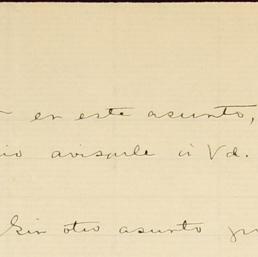 en este asunto,
avisarle á Vd.
Sin otro asunto